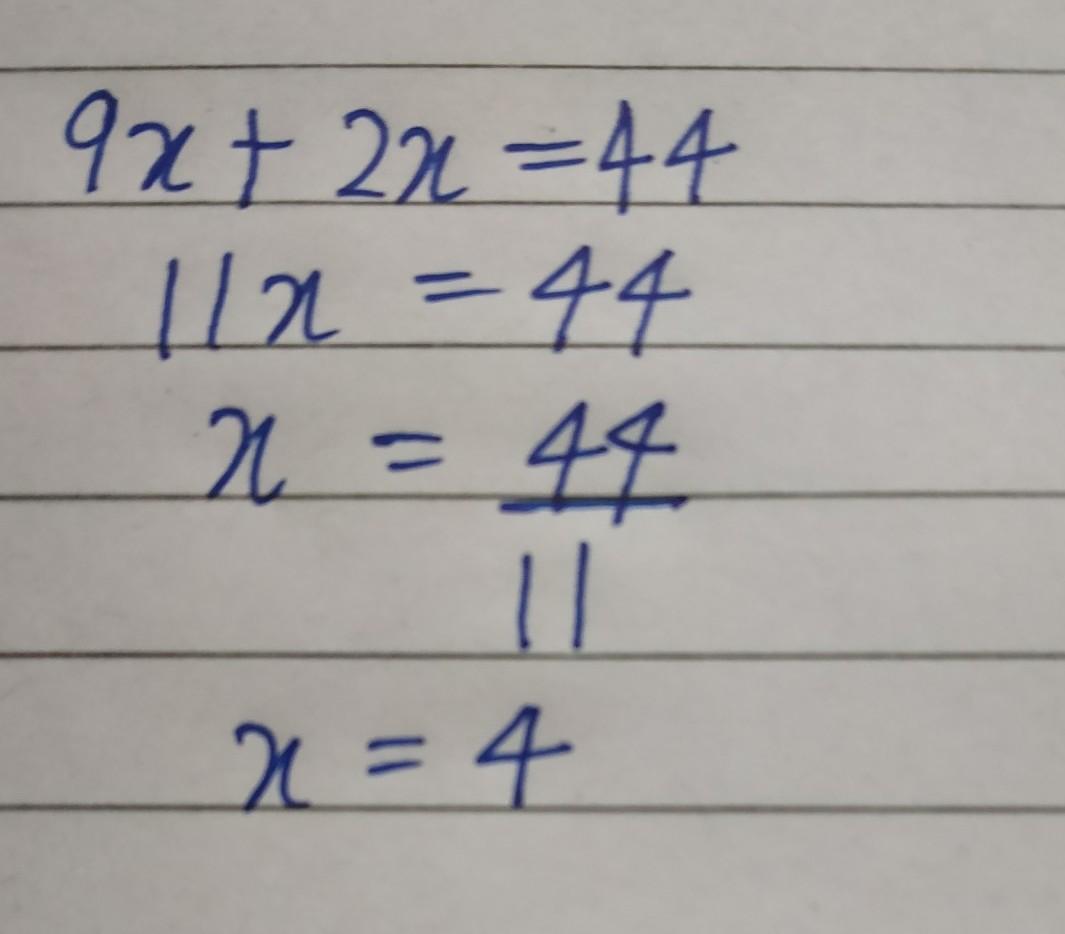 9x + 2x = 44
11x = 44
x = 44
11
x = 4